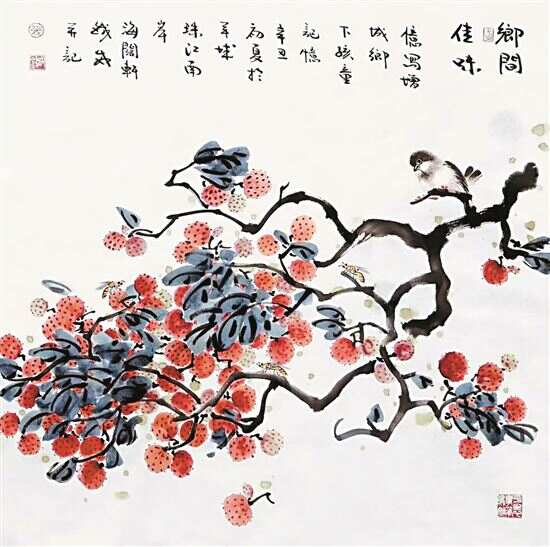 鄉間
佳味
憶寫增
城鄉
下孩童
記憶
辛丑
初夏於
羊城
珠江南
岸
海闊軒
并記